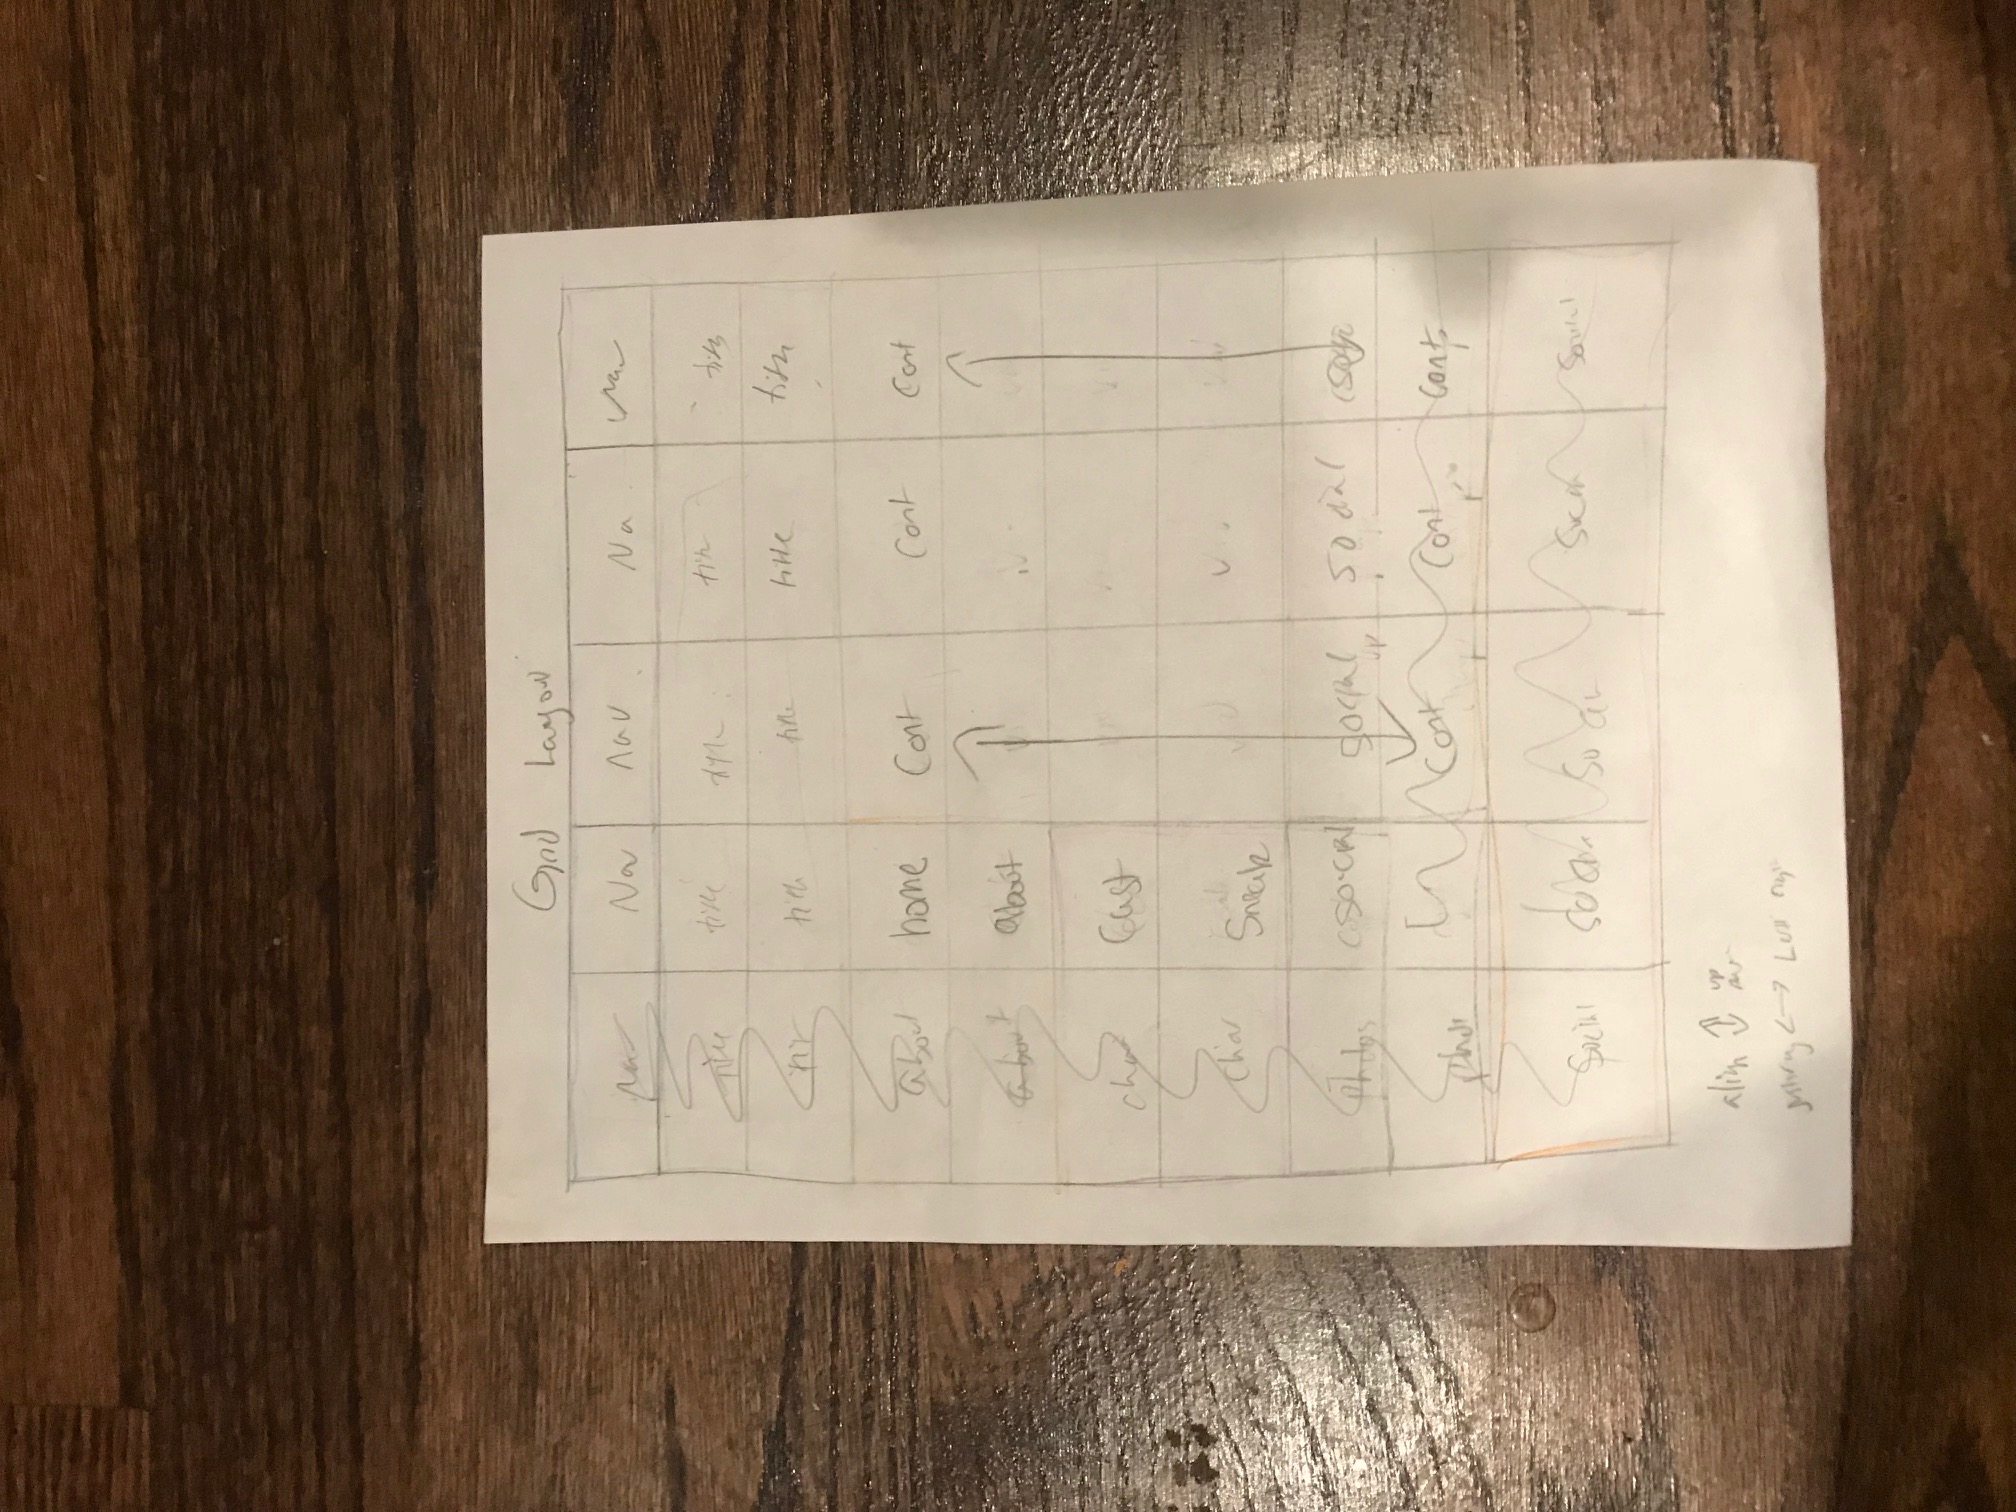 Grid Layout
Nav Nav Nav Na Nav
title title title title title
title title title title
about home Cont Cont Cont
about about
char Cast
char Sneak
Photos social social social
up
Cont Cont Cont
Social Social Social
align up
Left